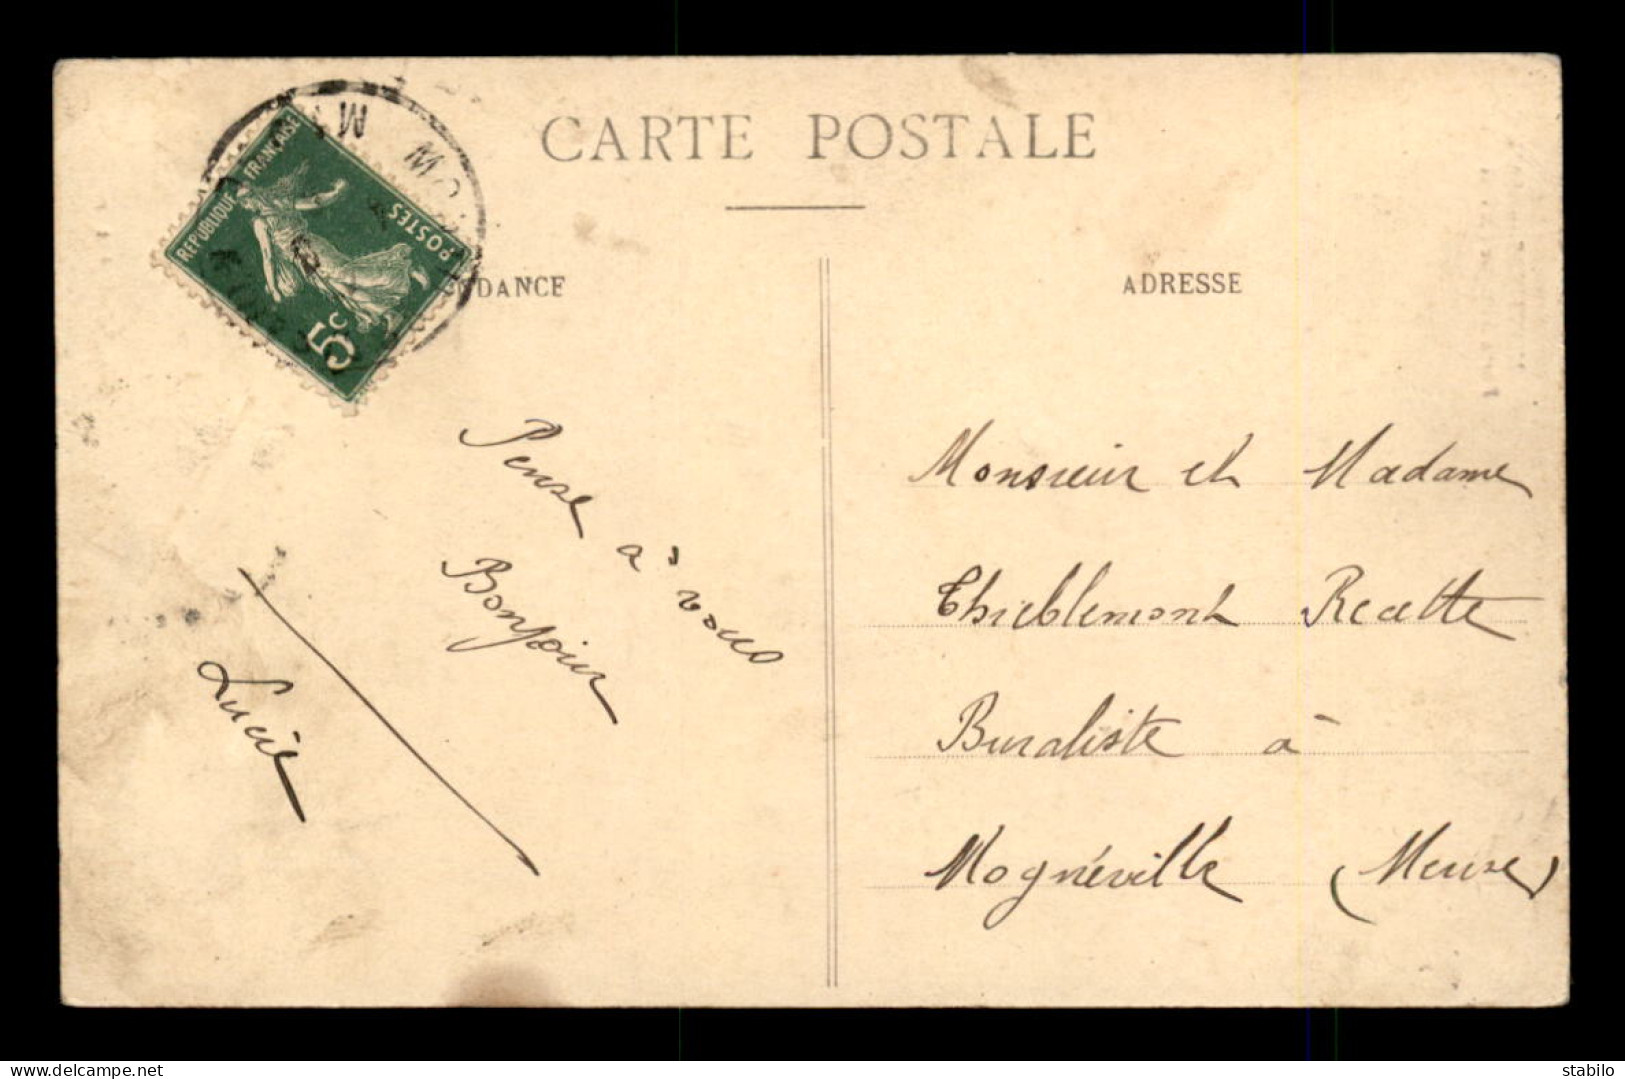 CARTE POSTALE
RÉPUBLIQUE FRANÇAISE
POSTES
5c
DANCE
ADRESSE
Pense à vous
Bonjour
Lucie
Monsieur et Madame
Thieblemont Recette
Buraliste à
Mognéville (Meuse)
www.delcampe.net
stabilo